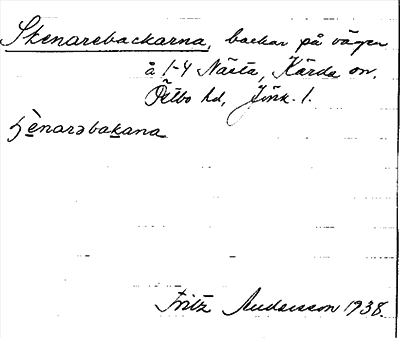 Skenarebackarna, backar på vägen
å 1-4 Nästa, Kärda sn.
Östbo hd, Jönk. l.
ʃènarəbakana
Fritz Andersson 1938.